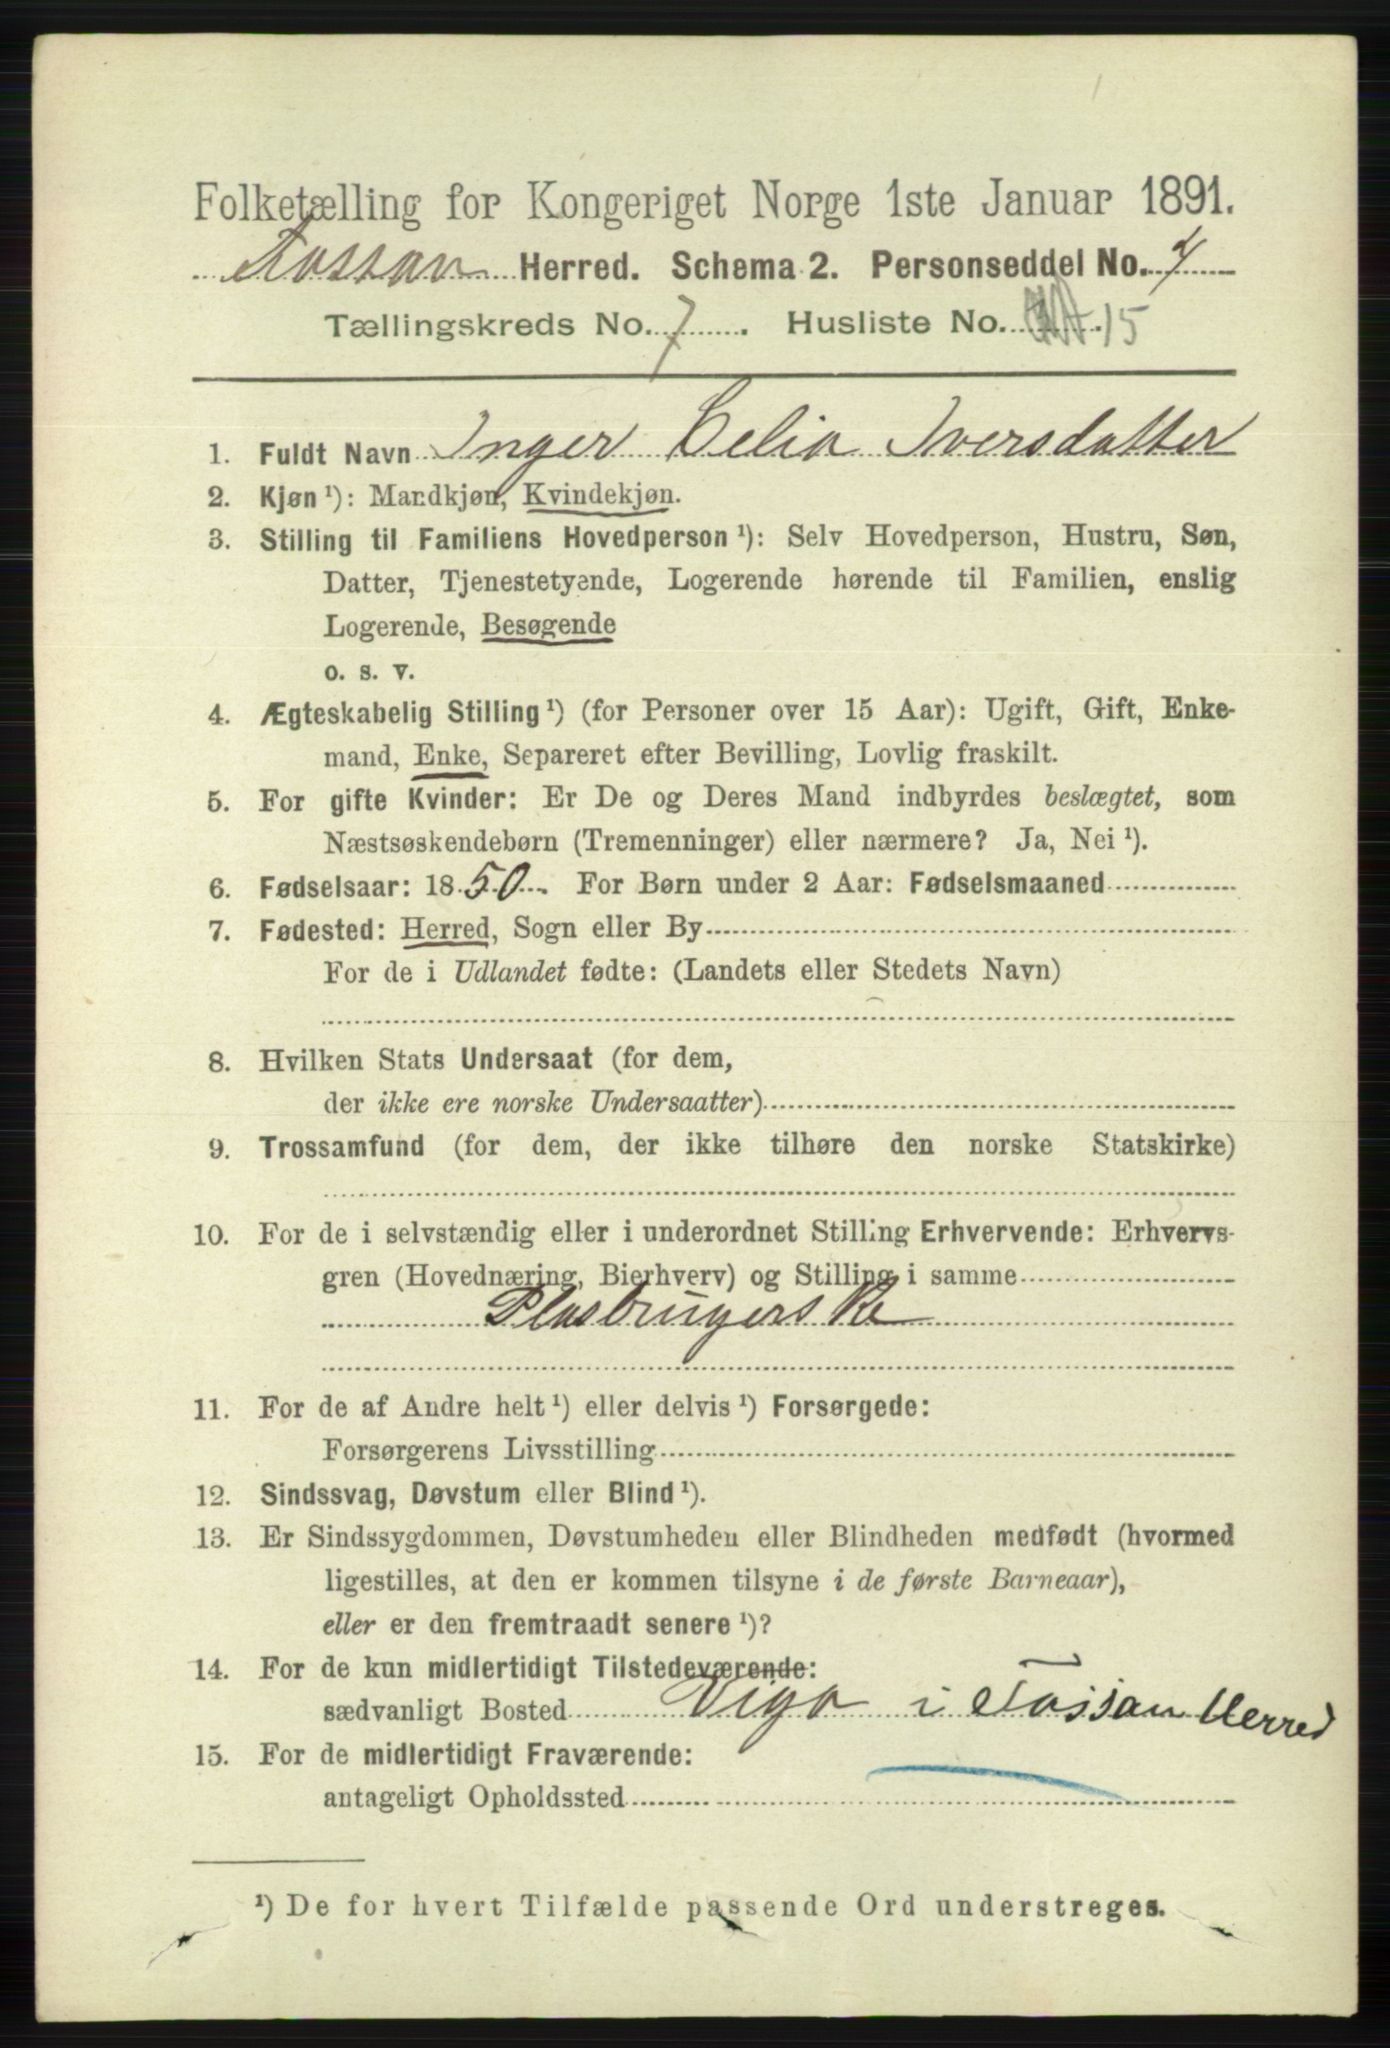 Folketælling for Kongeriget Norge 1ste Januar 1891.
Fossan Herred. Schema 2. Personseddel No. 4
Tællingskreds No. 7. Husliste No. 15
1. Fuldt Navn Inger Celia Iversdatter
2. Kjøn ¹): Mandkjøn, Kvindekjøn.
3. Stilling til Familiens Hovedperson ¹): Selv Hovedperson, Hustru, Søn,
Datter, Tjenestetyende, Logerende hørende til Familien, enslig
Logerende, Besøgende
o. s. v.
4. Ægteskabelig Stilling ¹) (for Personer over 15 Aar): Ugift, Gift, Enke-
mand, Enke, Separeret efter Bevilling, Lovlig fraskilt.
5. For gifte Kvinder: Er De og Deres Mand indbyrdes beslægtet, som
Næstsøskendebørn (Tremenninger) eller nærmere? Ja, Nei ¹).
6. Fødselsaar: 1850. For Børn under 2 Aar: Fødselsmaaned
7. Fødested: Herred, Sogn eller By
For de i Udlandet fødte: (Landets eller Stedets Navn)
8. Hvilken Stats Undersaat (for dem,
der ikke ere norske Undersaatter)
9. Trossamfund (for dem, der ikke tilhøre den norske Statskirke)
10. For de i selvstændig eller i underordnet Stilling Erhvervende: Erhvervs-
gren (Hovednæring, Bierhverv) og Stilling i samme
Plasbrugerske
11. For de af Andre helt ¹) eller delvis ¹) Forsørgede:
Forsørgerens Livsstilling
12. Sindssvag, Døvstum eller Blind ¹).
13. Er Sindssygdommen, Døvstumheden eller Blindheden medfødt (hvormed
ligestilles, at den er kommen tilsyne i de første Barneaar),
eller er den fremtraadt senere ¹)?
14. For de kun midlertidigt Tilstedeværende:
sædvanligt Bosted Viga i Fossan Herred
15. For de midlertidigt Fraværende:
antageligt Opholdssted
¹) De for hvert Tilfælde passende Ord understreges.